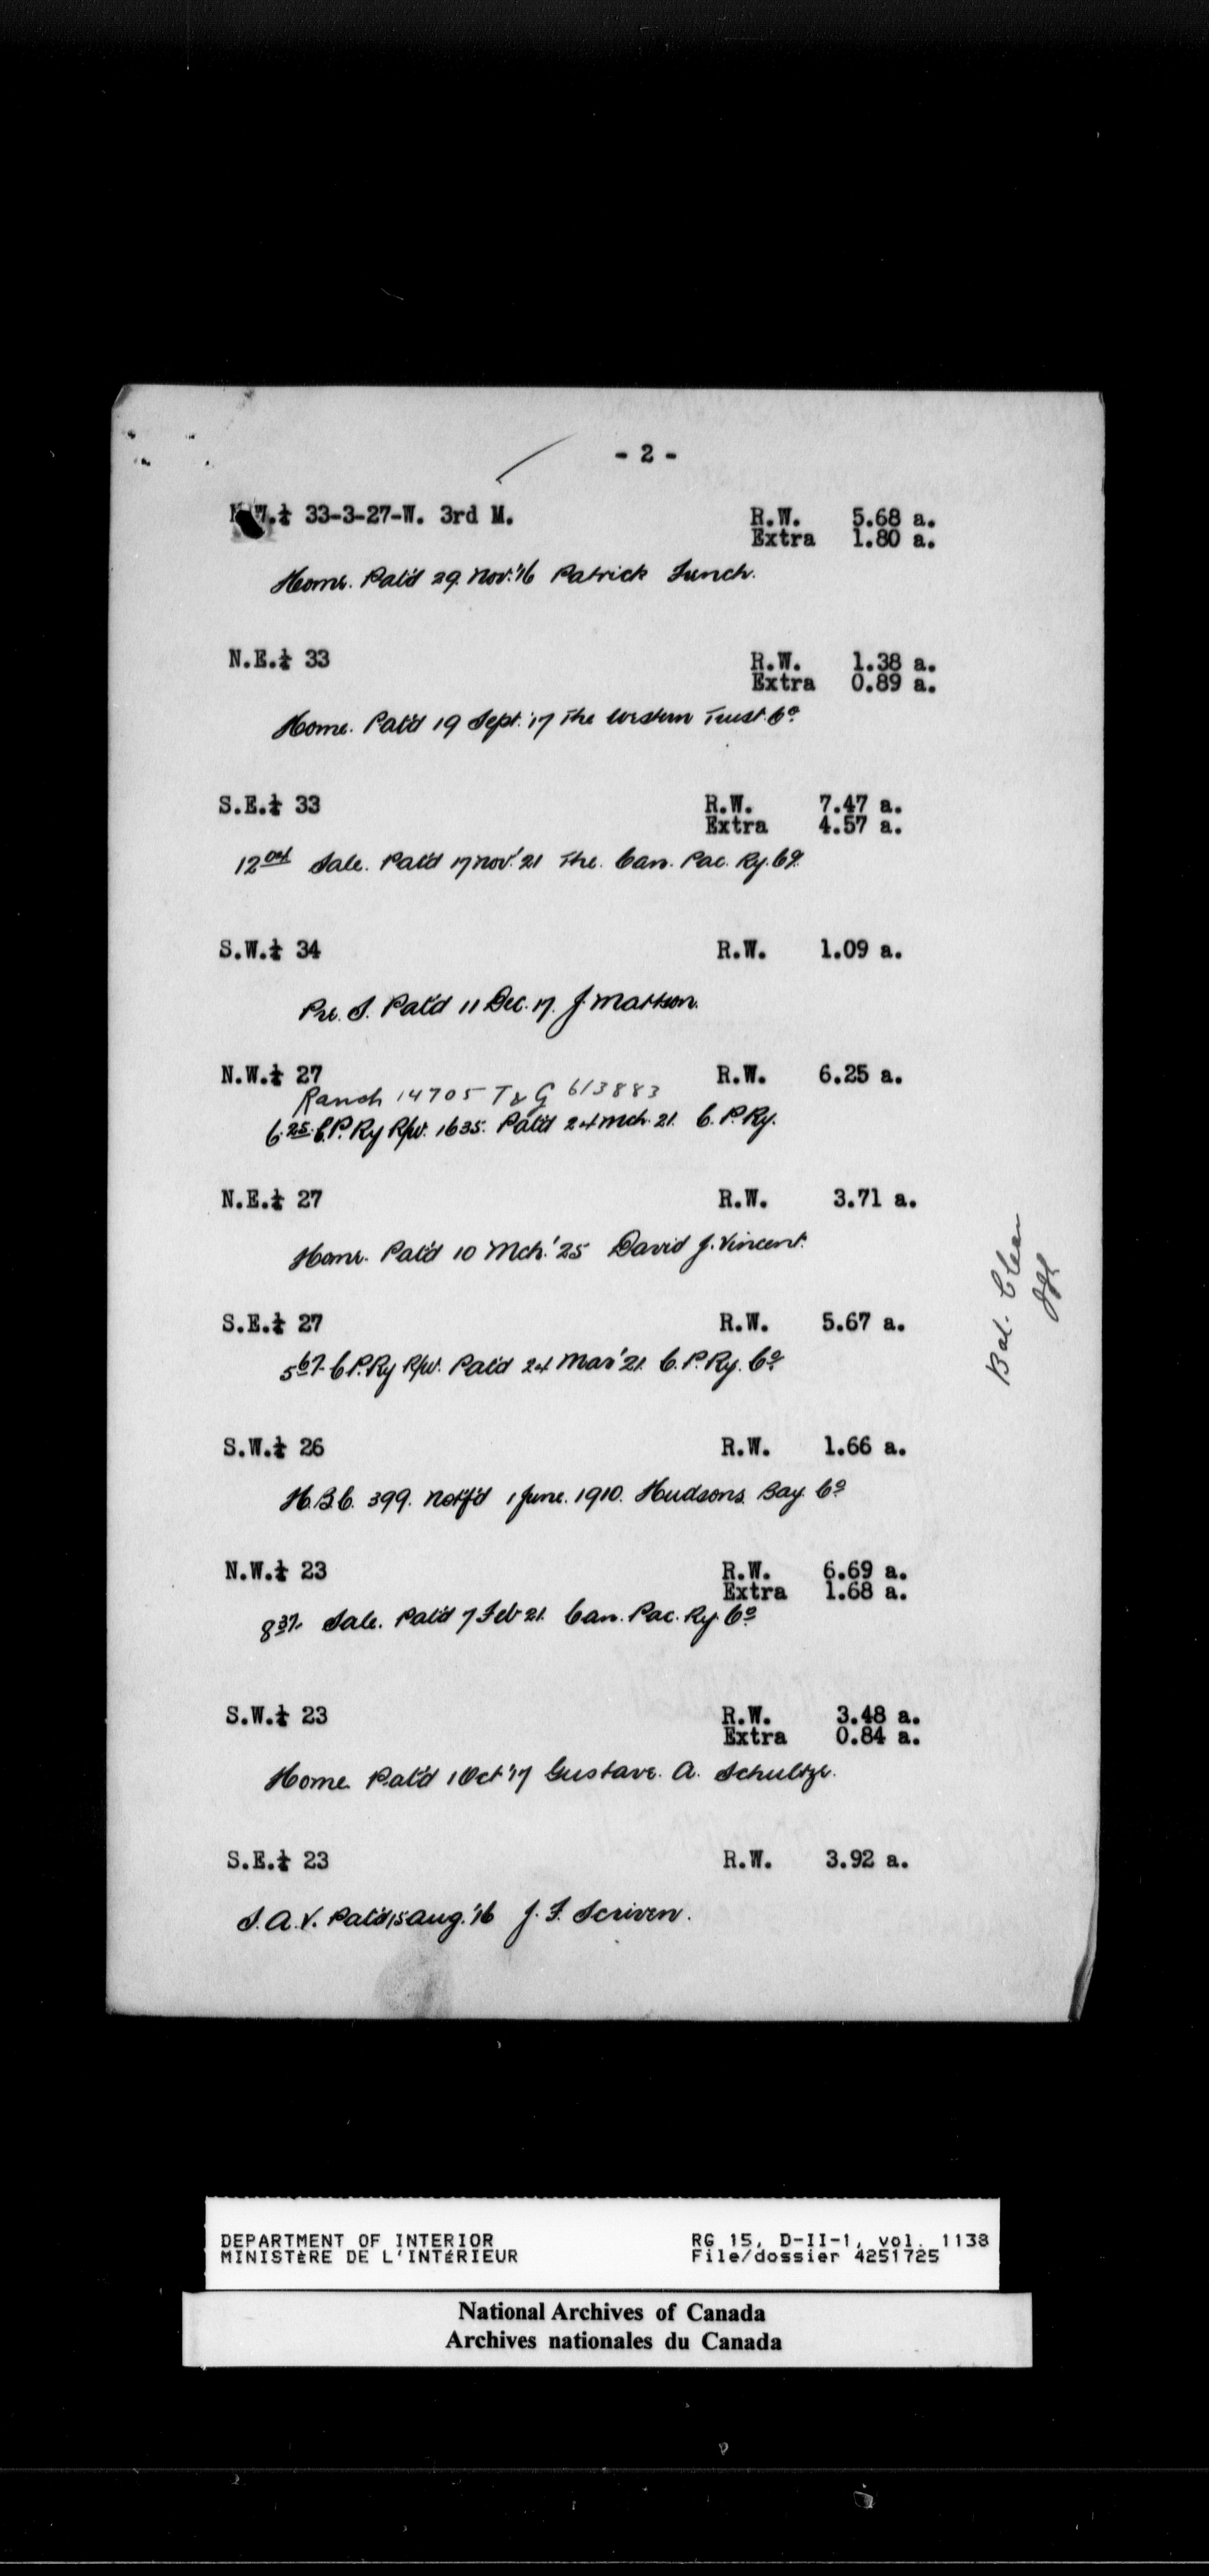 - 2 -
N.W.¼ 33-3-27-W. 3rd M. R.W. 5.68 a.
Extra 1.80 a.
Home. Pat'd 29 Nov. '16 Patrick
N.E.¼ 33 R.W. 1.38 a.
Extra 0.89 a.
Home. Pat'd 19 Sept. '17 The Western Trust Co
S.E.¼ 33 R.W. 7.47 a.
Extra 4.57 a.
12 04 Sale. Pat'd 17 Nov. '21 The. Can. Pac. Ry. Co.
S.W.¼ 34 R.W. 1.09 a.
Pre. S. Pat'd 11 Dec. 17. J. Mattson.
N.W.¼ 27 R.W. 6.25 a.
Ranch 14705 T & G 613883
6.25 C.P. Ry R/w. 1635. Pat'd 24 Mch. 21. C.P. Ry.
N.E.¼ 27 R.W. 3.71 a.
Home. Pat'd 10 Mch. '25 David J. Vincent.
S.E.¼ 27 R.W. 5.67 a.
5 67 C.P. Ry R/w. Pat'd 24 Mar '21. C.P. Ry. Co
S.W.¼ 26 R.W. 1.66 a.
H.B.C. 399. Notf'd 1 June. 1910. Hudsons Bay. Co
N.W.¼ 23 R.W. 6.69 a.
Extra 1.68 a.
8 37 Sale. Pat'd 7 Feb 21. Can. Pac. Ry. Co
S.W.¼ 23 R.W. 3.48 a.
Extra 0.84 a.
Home. Pat'd 1 Oct '17 Gustave. A. Schultze.
S.E.¼ 23 R.W. 3.92 a.
S.A.V. Pat'd 15 Aug. '16 J. F. Scriven.
Bal. Clear
DEPARTMENT OF INTERIOR RG 15, D-II-1, vol. 1138
MINISTÈRE DE L'INTÉRIEUR File/dossier 4251725
National Archives of Canada
Archives nationales du Canada